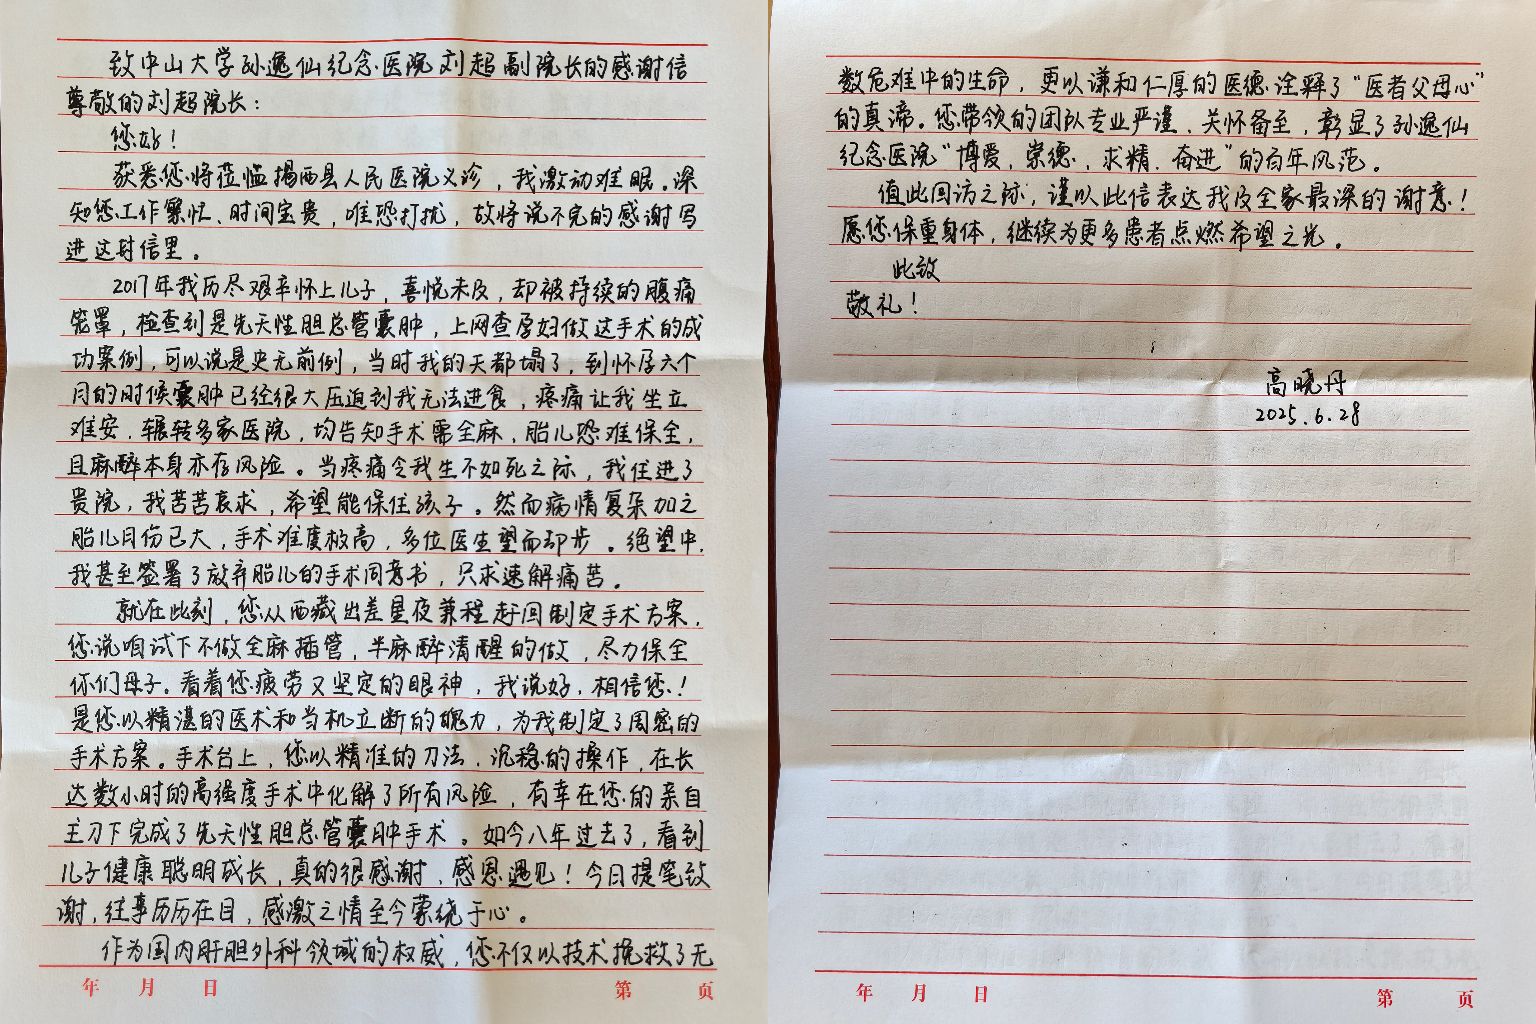 致中山大学孙逸仙纪念医院刘超副院长的感谢信
尊敬的刘超院长：
您好！
获悉您将莅临揭西县人民医院义诊，我激动难眠。深
知您工作繁忙、时间宝贵，唯恐打扰，故将说不完的感谢写
进这封信里。
2017年我历尽艰辛怀上儿子，喜悦未及，却被持续的腹痛
笼罩，检查到是先天性胆总管囊肿，上网查孕妇做这手术的成
功案例，可以说是史无前例，当时我的天都塌了，到怀孕六个
月的时候囊肿已经很大压迫到我无法进食，疼痛让我坐立
难安，辗转多家医院，均告知手术需全麻，胎儿恐难保全，
且麻醉本身亦存风险。当疼痛令我生不如死之际，我住进了
贵院，我苦苦哀求，希望能保住孩子。然而病情复杂加之
胎儿月份已大，手术难度极高，多位医生望而却步。绝望中，
我甚至签署了放弃胎儿的手术同意书，只求速解痛苦。
就在此刻，您从西藏出差星夜兼程赶回制定手术方案，
您说咱试下不做全麻插管，半麻醉清醒的做，尽力保全
你们母子。看着您疲劳又坚定的眼神，我说好，相信您！
是您以精湛的医术和当机立断的魄力，为我制定了周密的
手术方案。手术台上，您以精准的刀法、沉稳的操作，在长
达数小时的高强度手术中化解了所有风险，有幸在您的亲自
主刀下完成了先天性胆总管囊肿手术。如今八年过去了，看到
儿子健康聪明成长，真的很感谢，感恩遇见！今日提笔致
谢，往事历历在目，感激之情至今萦绕于心。
作为国内肝胆外科领域的权威，您不仅以技术挽救了无
年 月 日
第 页
数危难中的生命，更以谦和仁厚的医德诠释了“医者父母心”
的真谛。您带领的团队专业严谨、关怀备至，彰显了孙逸仙
纪念医院“博爱，崇德，求精，奋进”的百年风范。
值此回访之际，谨以此信表达我及全家最深的谢意！
愿您保重身体，继续为更多患者点燃希望之光。
此致
敬礼！
高晓丹
2025.6.28
年 月 日
第 页